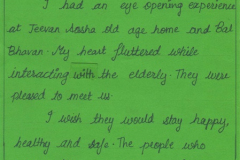 I had an eye opening experience
at Jeevan Aasha old age home and Bal
Bhavan. My heart fluttered while
interacting with the elderly. They were
pleased to meet us.
I wish they would stay happy,
healthy and safe. The people who